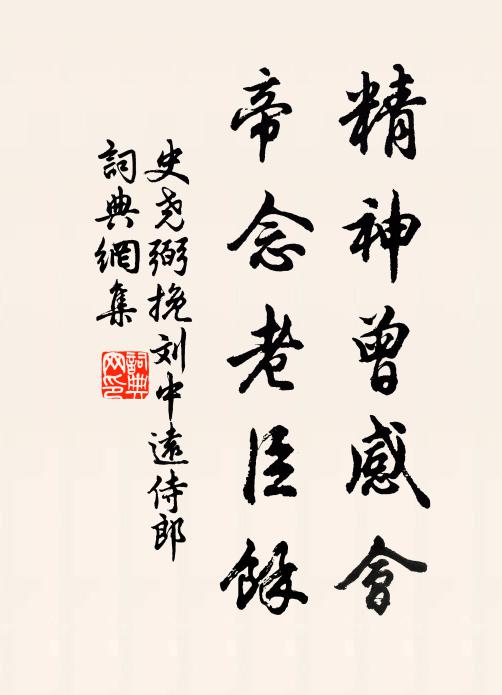 精神曾感會
帝念老臣餘
史尧弼挽刘中遠侍郎
詞典網集
詞典网印